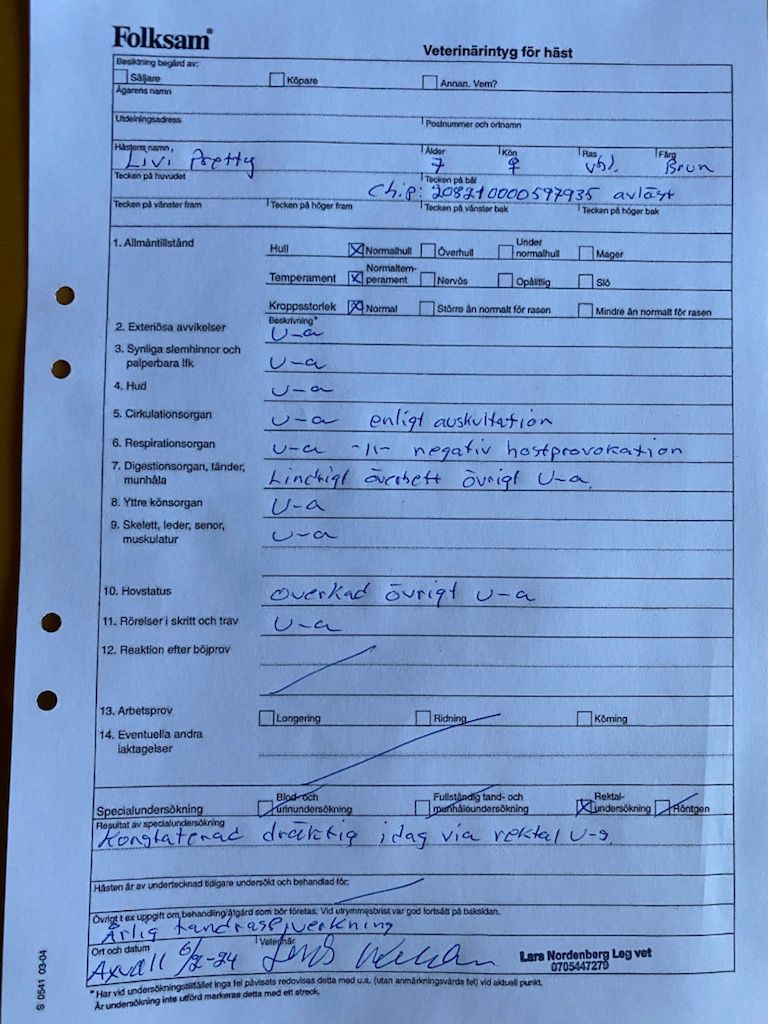 Folksam®
Veterinärintyg för häst
Besiktning begärd av:
Säljare Köpare Annan. Vem?
Ägarens namn
Utdelningsadress Postnummer och ortnamn
Hästens namn, Ålder Kön Ras Färg
Livi Pretty 7 ♀ vbl. Brun
Tecken på huvudet Tecken på bål
Chip: 208210000597935 avläst
Tecken på vänster fram Tecken på höger fram Tecken på vänster bak Tecken på höger bak
1. Allmäntillstånd Hull Normalhull Överhull Under normalhull Mager
Temperament Normaltemperament Nervös Opålitlig Slö
Kroppsstorlek Normal Större än normalt för rasen Mindre än normalt för rasen
Beskrivning*
2. Exteriösa avvikelser U-a
3. Synliga slemhinnor och
palperbara lfk U-a
4. Hud U-a
5. Cirkulationsorgan U-a enligt auskultation
6. Respirationsorgan U-a -11- negativ hostprovokation
7. Digestionsorgan, tänder,
munhåla Lindrigt överbett övrigt U-a.
8. Yttre könsorgan U-a
9. Skelett, leder, senor,
muskulatur U-a
10. Hovstatus overkad övrigt U-a
11. Rörelser i skritt och trav U-a
12. Reaktion efter böjprov
13. Arbetsprov Longering Ridning Körning
14. Eventuella andra
iaktagelser
Specialundersökning Blod- och urinundersökning Fullständig tand- och munhåleundersökning Rektal-undersökning Röntgen
Resultat av specialundersökning
Konstaterad dräktig idag via rektal U-s.
Hästen är av undertecknad tidigare undersökt och behandlad för:
Övrigt t ex uppgift om behandling/åtgärd som bör företas. Vid utrymmesbrist var god fortsätt på baksidan.
Årlig tandraspverkning
Ort och datum Veterinär
Axvall 6/2-24
Lars Nordenberg Leg vet
0705447279
* Har vid undersökningstillfället inga fel påvisats redovisas detta med u.a. (utan anmärkningsvärda fel) vid aktuell punkt.
Är undersökning inte utförd markeras detta med ett streck.
S 0541 03-04